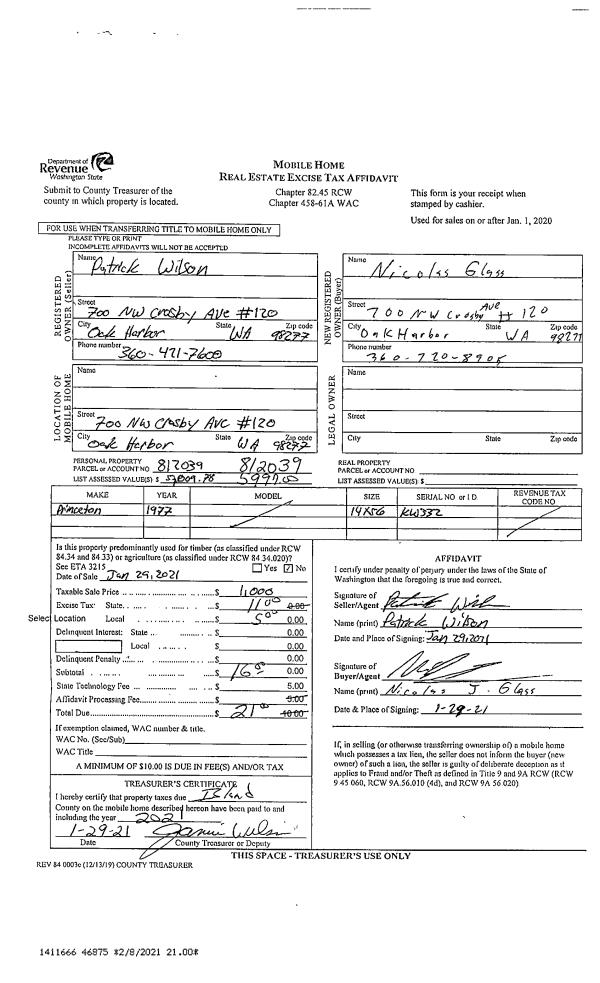 Department of
Revenue
Washington State
Submit to County Treasurer of the
county in which property is located.
MOBILE HOME
REAL ESTATE EXCISE TAX AFFIDAVIT
Chapter 82.45 RCW
Chapter 458-61A WAC
This form is your receipt when
stamped by cashier.
Used for sales on or after Jan. 1, 2020
FOR USE WHEN TRANSFERRING TITLE TO MOBILE HOME ONLY
PLEASE TYPE OR PRINT
INCOMPLETE AFFIDAVITS WILL NOT BE ACCEPTED
REGISTERED OWNER (Seller)
Name Patrick Wilson
Street 700 NW Crosby Ave #120
City Oak Harbor State WA Zip code 98277
Phone number 360-421-7600
NEW REGISTERED OWNER (Buyer)
Name Nicolas Glass
Street 700 NW Crosby Ave # 120
City Oak Harbor State WA Zip code 98277
Phone number 360-720-8905
LOCATION OF MOBILE HOME
Name
Street 700 NW Crosby Ave #120
City Oak Harbor State WA Zip code 98277
LEGAL OWNER
Name
Street
City State Zip code
PERSONAL PROPERTY
PARCEL or ACCOUNT NO 812039 812039
LIST ASSESSED VALUE(S) $ 5997.00
REAL PROPERTY
PARCEL or ACCOUNT NO
LIST ASSESSED VALUE(S) $
MAKE YEAR MODEL SIZE SERIAL NO or I D REVENUE TAX CODE NO
Princeton 1977 14X56 KW332
Is this property predominantly used for timber (as classified under RCW
84.34 and 84.33) or agriculture (as classified under RCW 84 34.020)?
See ETA 3215 Yes No
Date of Sale Jan 29, 2021
Taxable Sale Price $ 1,000
Excise Tax: State $ 11 00 0.00
Select Location Local $ 5 00 0.00
Delinquent Interest: State $ 0.00
Local $ 0.00
Delinquent Penalty $ 0.00
Subtotal $ 16 00 0.00
State Technology Fee $ 5.00
Affidavit Processing Fee $ 5.00
Total Due $ 21 00 10.00
If exemption claimed, WAC number & title.
WAC No. (Sec/Sub)
WAC Title
A MINIMUM OF $10.00 IS DUE IN FEE(S) AND/OR TAX
TREASURER'S CERTIFICATE
I hereby certify that property taxes due Island
County on the mobile home described hereon have been paid to and
including the year 2021
1-29-21
Date County Treasurer or Deputy
AFFIDAVIT
I certify under penalty of perjury under the laws of the State of
Washington that the foregoing is true and correct.
Signature of
Seller/Agent
Name (print) Patrick Wilson
Date and Place of Signing: Jan 29, 2021
Signature of
Buyer/Agent
Name (print) Nicolas J. Glass
Date & Place of Signing: 1-29-21
If, in selling (or otherwise transferring ownership of) a mobile home
which possesses a tax lien, the seller does not inform the buyer (new
owner) of such a lien, the seller is guilty of deliberate deception as it
applies to Fraud and/or Theft as defined in Title 9 and 9A RCW (RCW
9 45 060, RCW 9A.56.010 (4d), and RCW 9A 56 020)
THIS SPACE - TREASURER'S USE ONLY
REV 84 0003e (12/13/19) COUNTY TREASURER
1411666 46875 *2/8/2021 21.00*